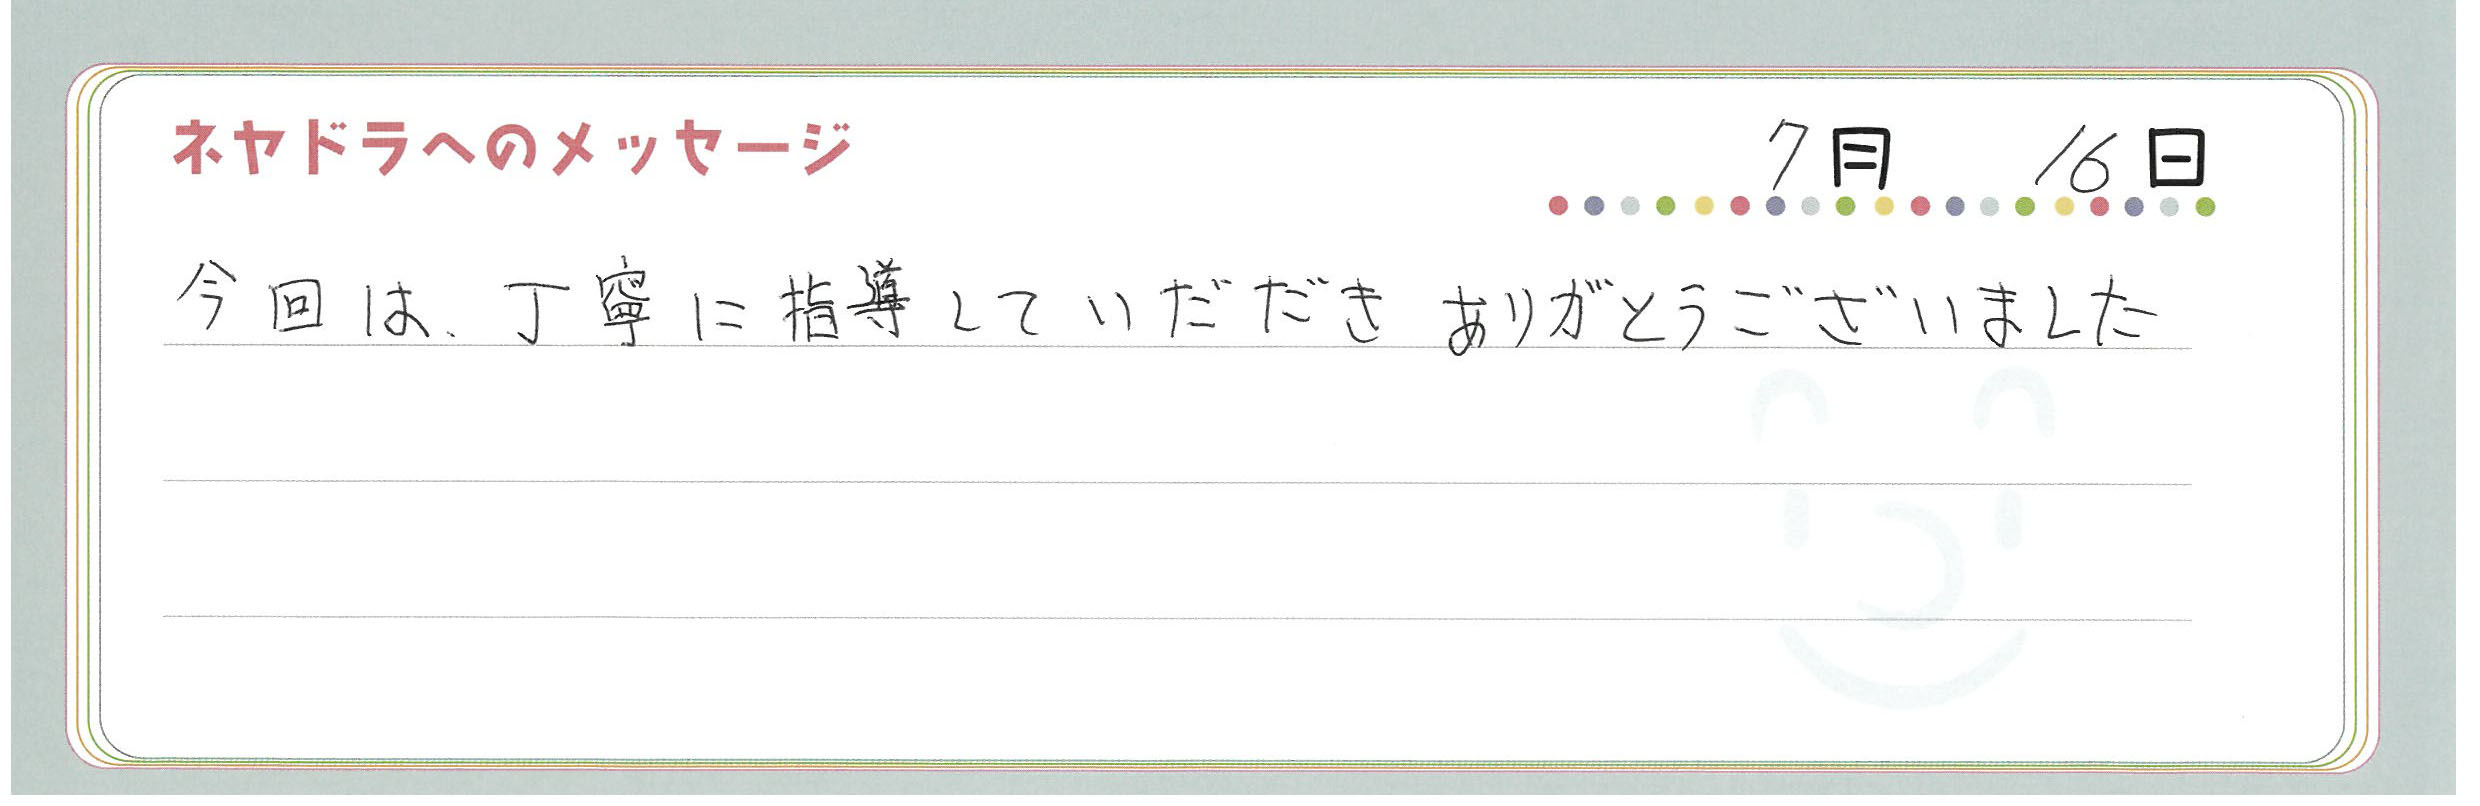 ネヤドラへのメッセージ
7月 16日
今回は、丁寧に指導していだだき ありがとうございました